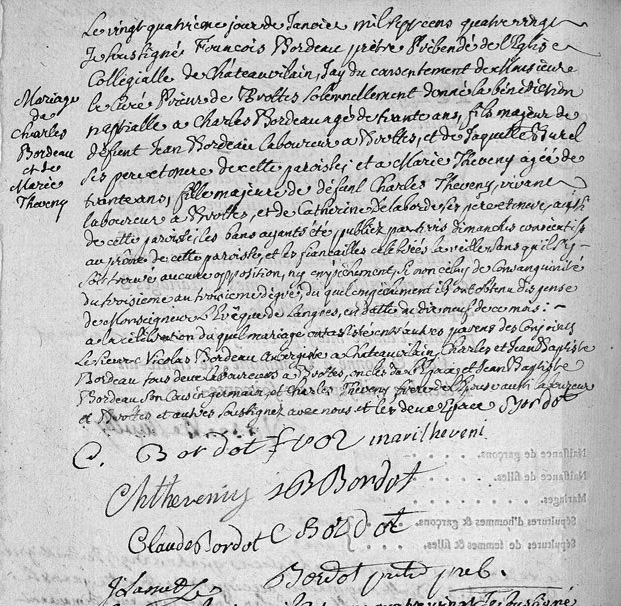 Le vingt quatrieme jour de Janvier mil sept cens quatre vingt
Je soussigné François Bordeau prêtre Prébendé de l'Eglise
Collegialle de Châteauvilain, Jay du consentement de Monsieur
le Curé Prieur de Brottes solennellement donné la bénédiction
nuptialle a Charles Bordeau agé de trante ans, fils majeur de
défunt Jean Bordeau laboureur a Brottes, et de Jaquette Burel
ses pere et mere de cette paroisse; et a Marie Theveny agée de
trante ans, fille majeure de défunt Charles Theveny, vivant
laboureur a Brottes, et de Catherine Delaborde ses pere et mere, aussi
de cette paroisse; les bans ayants été publiez par trois dimanches consecutifs
au prône de cette paroisse, et les fiancailles celebrées la veille sans qu'il s'y
soit trouvé aucune opposition, ny empêchement, si non celuy de Consanguinité
du troisieme au troisieme dégré, du quel empêchement ils ont obtenu dispense
de Monseigneur L'evêque de Langres, en datte du dix neuf de ce mois:
a la célébration du quel mariage ont assisté entre autres parens des Conjoints
Le Sieur Nicolas Bordeau a Châteauvilain, Charles et Jean Baptiste
Bordeau tous deux Laboureurs a Brottes, oncles de l'Epoux, et Jean Baptiste
Bordeau son Cousin germain, et Charles Theveny frere de l'Epouse aussi laboureur
a Brottes et autres soussignez avec nous et les deux Epoux Bordot
Mariage
de
Charles
Bordeau
et de
Marie
Theveny
C. Bordot mari theveni
Ch thevenis J B Bordot
Claude Bordot C Bordot
Bordot pretre preb.
Naissance de garçons.
Naissance de filles.
Mariages.
Sépultures d'hommes & garçons.
Sépultures de femmes & filles.
quatre vingt Je soussigné